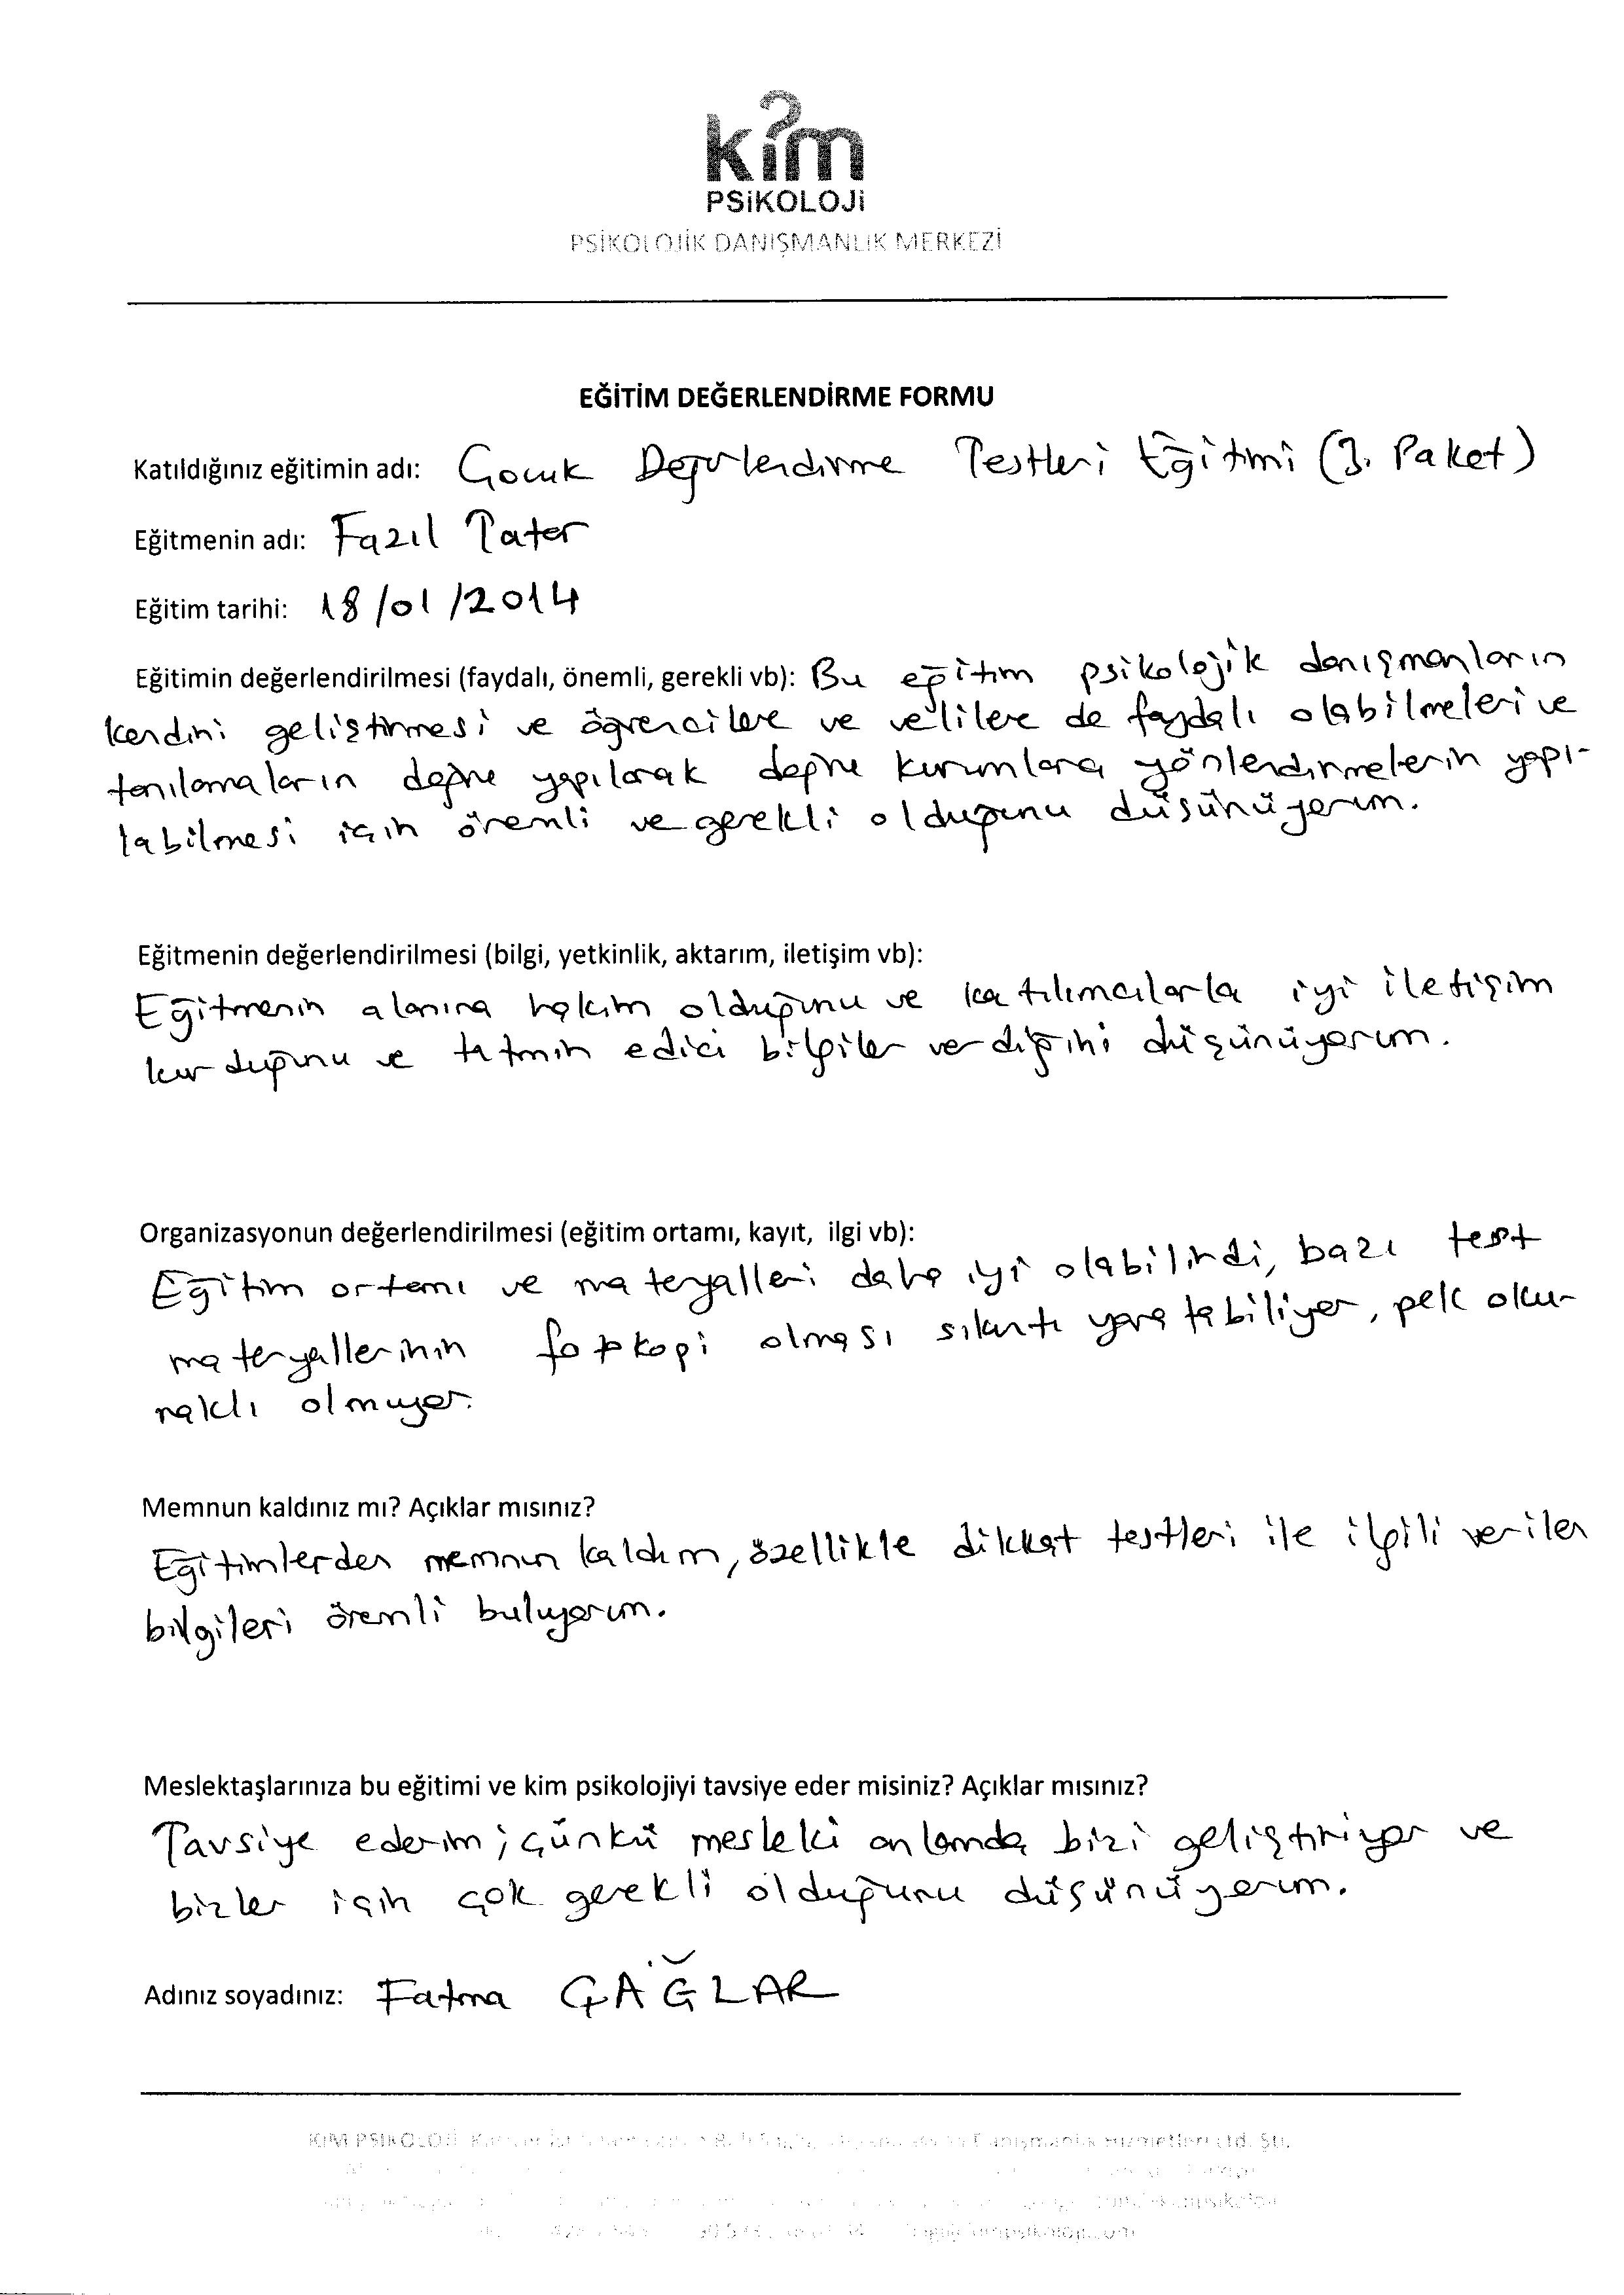 kim
PSİKOLOJİ
PSİKOLOJİK DANIŞMANLIK MERKEZİ
EĞİTİM DEĞERLENDİRME FORMU
Katıldığınız eğitimin adı: Çocuk Değerlendirme Testleri Eğitimi (3. Paket)
Eğitmenin adı: Fazıl Tatar
Eğitim tarihi: 18/01/2014
Eğitimin değerlendirilmesi (faydalı, önemli, gerekli vb): Bu eğitim psikolojik danışmanların
kendini geliştirmesi ve öğrencilere ve velilere de faydalı olabilmeleri ve
tanılamaların doğru yapılarak doğru kurumlara yönlendirmelerin yapı-
labilmesi için önemli ve gerekli olduğunu düşünüyorum.
Eğitmenin değerlendirilmesi (bilgi, yetkinlik, aktarım, iletişim vb):
Eğitmenin alanına hakim olduğunu ve katılımcılarla iyi iletişim
kurduğunu ve tatmin edici bilgiler verdiğini düşünüyorum.
Organizasyonun değerlendirilmesi (eğitim ortamı, kayıt, ilgi vb):
Eğitim ortamı ve materyalleri daha iyi olabilirdi, bazı test
materyallerinin fotokopi olması sıkıntı yaratabiliyor, pek oku-
naklı olmuyor.
Memnun kaldınız mı? Açıklar mısınız?
Eğitimlerden memnun kaldım, özellikle dikkat testleri ile ilgili verilen
bilgileri önemli buluyorum.
Meslektaşlarınıza bu eğitimi ve kim psikolojiyi tavsiye eder misiniz? Açıklar mısınız?
Tavsiye ederim; çünkü mesleki anlamda bizi geliştiriyor ve
bizler için çok gerekli olduğunu düşünüyorum.
Adınız soyadınız: Fatma ÇAĞLAR
KİM PSİKOLOJİ Danışmanlık Hizmetleri Ltd. Şti.